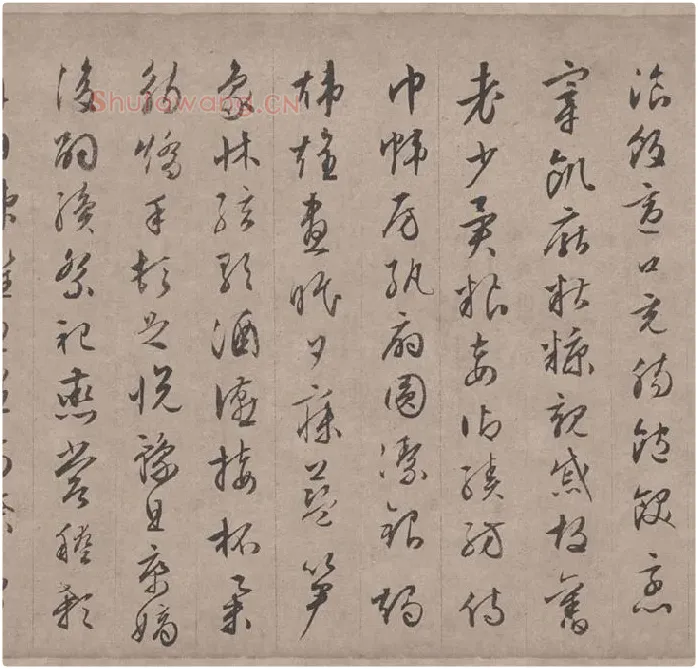 湌飯適口充腸飽飫烹
宰飢厭糟糠親戚故舊
老少異糧妾御績紡侍
巾帷房紈扇圓潔銀燭
煒煌晝眠夕寐藍笋
象牀絃歌酒讌接杯舉
觴矯手頓足悅豫且康嫡
後嗣續祭祀蒸嘗稽顙
Shufawang.CN